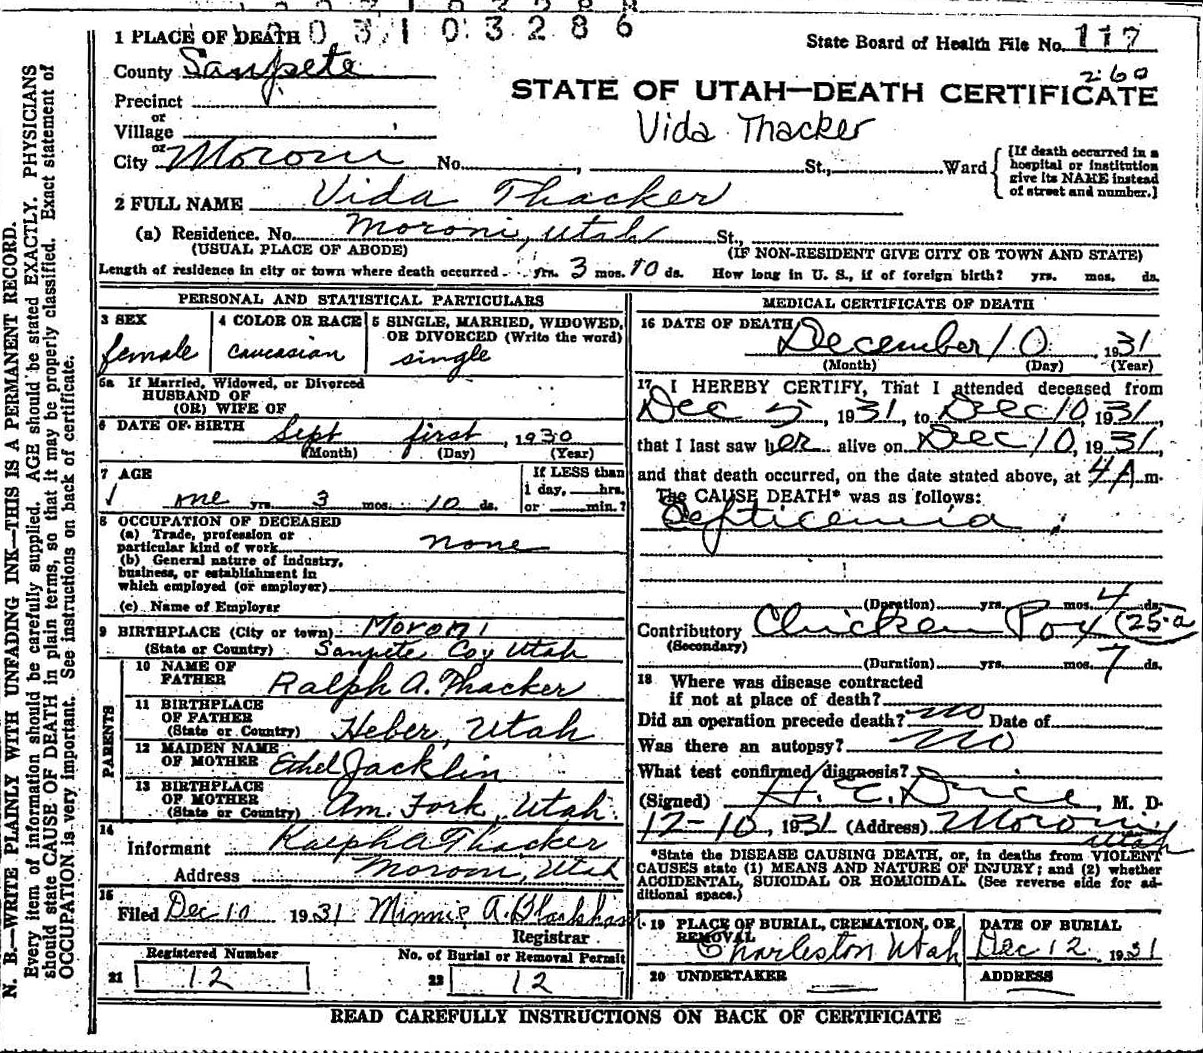 003103286
1 PLACE OF DEATH
State Board of Health File No. 117
County Sanpete
260
Precinct
STATE OF UTAH—DEATH CERTIFICATE
or
Village
Vida Thacker
or
City Moroni No. , St., Ward
{If death occurred in a
hospital or institution
give its NAME instead
of street and number.}
2 FULL NAME Vida Thacker
(a) Residence. No. Moroni, Utah St.,
(USUAL PLACE OF ABODE) (IF NON-RESIDENT GIVE CITY OR TOWN AND STATE)
Length of residence in city or town where death occurred yrs. 3 mos. 10 ds. How long in U. S., if of foreign birth? yrs. mos. ds.
PERSONAL AND STATISTICAL PARTICULARS
3 SEX
female
4 COLOR OR RACE
Caucasian
5 SINGLE, MARRIED, WIDOWED,
OR DIVORCED (Write the word)
single
5a If Married, Widowed, or Divorced
HUSBAND OF
(OR) WIFE OF
6 DATE OF BIRTH Sept first, 1930
(Month) (Day) (Year)
7 AGE
1 one yrs. 3 mos. 10 ds.
If LESS than
1 day, hrs.
or min.?
8 OCCUPATION OF DECEASED
(a) Trade, profession or
particular kind of work none
(b) General nature of industry,
business, or establishment in
which employed (or employer)
(c) Name of Employer
9 BIRTHPLACE (City or town) Moroni
(State or Country) Sanpete Coy Utah
PARENTS
10 NAME OF
FATHER Ralph A. Thacker
11 BIRTHPLACE
OF FATHER
(State or Country) Heber, Utah
12 MAIDEN NAME
OF MOTHER Ethel Jacklin
13 BIRTHPLACE
OF MOTHER
(State or Country) Am. Fork, Utah.
14
Informant Ralph A Thacker
Address Moroni, Utah
15
Filed Dec 10 1931 Minnie A. Blackham
Registrar
Registered Number
21 12
No. of Burial or Removal Permit
22 12
MEDICAL CERTIFICATE OF DEATH
16 DATE OF DEATH
December 10, 1931
(Month) (Day) (Year)
17 I HEREBY CERTIFY, That I attended deceased from
Dec 5, 1931, to Dec 10, 1931
that I last saw her alive on Dec 10, 1931,
and that death occurred, on the date stated above, at 4 A m.
The CAUSE DEATH* was as follows:
Septicemia
(Duration) yrs. mos. 4 ds.
Contributory Chicken Pox (25-a
(Secondary)
(Duration) yrs. mos. 7 ds.
18 Where was disease contracted
if not at place of death?
Did an operation precede death? no Date of
Was there an autopsy? no
What test confirmed diagnosis?
(Signed) H. C. Dice, M. D.
12-10, 1931 (Address) Moroni,
Utah
*State the DISEASE CAUSING DEATH, or, in deaths from VIOLENT
CAUSES state (1) MEANS AND NATURE OF INJURY; and (2) whether
ACCIDENTAL, SUICIDAL OR HOMICIDAL. (See reverse side for ad-
ditional space.)
19 PLACE OF BURIAL, CREMATION, OR
REMOVAL
Charleston Utah
DATE OF BURIAL
Dec 12 1931
20 UNDERTAKER
ADDRESS
READ CAREFULLY INSTRUCTIONS ON BACK OF CERTIFICATE
N. B.—WRITE PLAINLY WITH UNFADING INK—THIS IS A PERMANENT RECORD.
Every item of information should be carefully supplied. AGE should be stated EXACTLY. PHYSICIANS
should state CAUSE OF DEATH in plain terms, so that it may be properly classified. Exact statement of
OCCUPATION is very important. See instructions on back of certificate.